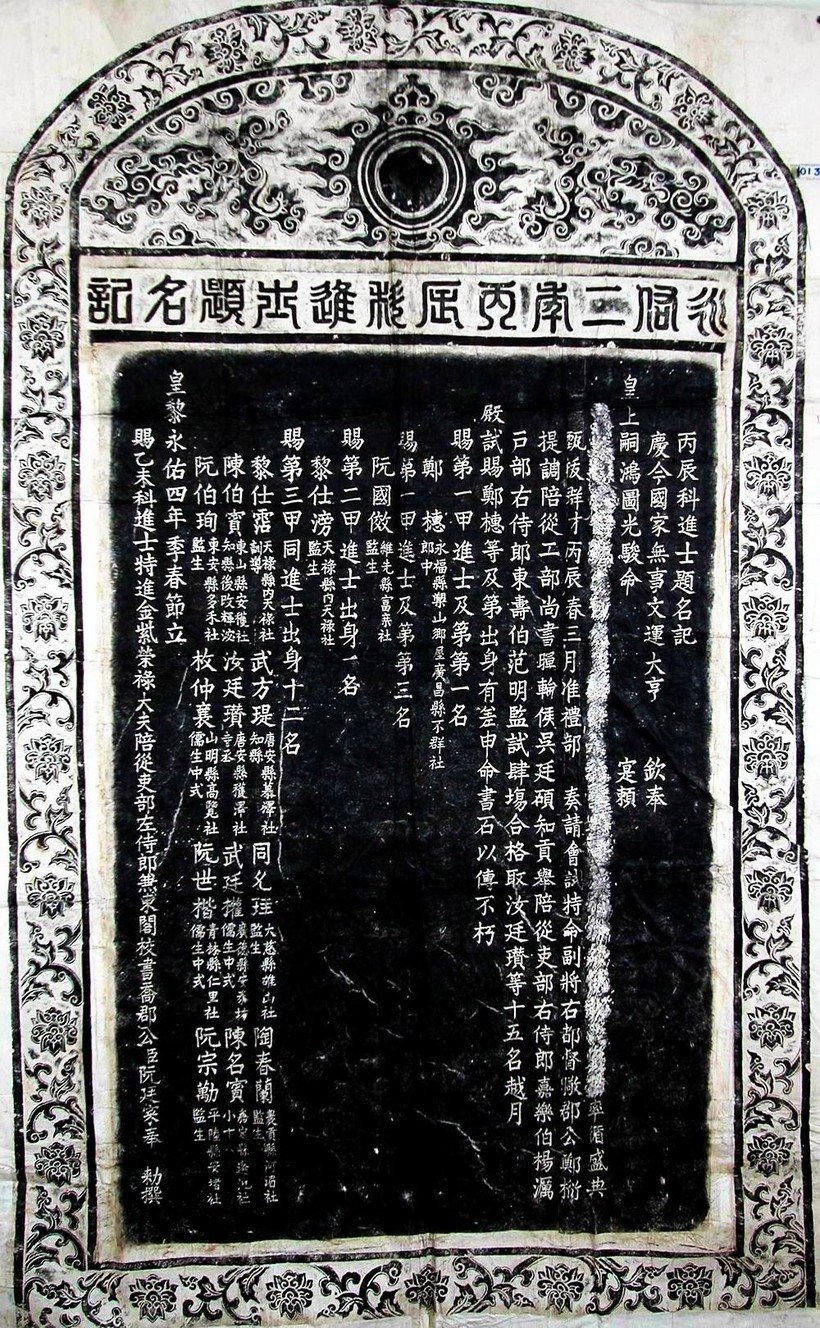 永佑二年丙辰科進士題名記
丙辰科進士題名記
慶今國家無事文運大亨 欽奉
皇上嗣鴻圖光駿命 寔賴
率循盛典
甄拔群才丙辰春三月准禮部奏請會試特命副將右都督 部公鄭
提調陪從工部尚書 輪侯吳廷碩知貢舉陪從吏部右侍郎嘉樂伯楊
戶部右侍郎東壽伯范明監試肆場合格取汝廷瓚等十五名越月
殿試賜鄭橞等及第出身有差申命書石以傳不朽
賜第一甲進士及第第一名
鄭橞 永福縣 山鄉 廣昌縣不群社 郎中
賜第一甲進士及第第三名
阮國 監生
賜第二甲進士出身一名
黎仕滂 天祿縣內天祿社 監生
賜第三甲同進士出身十二名
黎仕 天祿縣內天祿社 訓導 武方 唐安縣慕澤社 知縣 同 大慈縣雄山社 監生 陶春蘭 監生
陳伯賓 東山縣安穫社 知縣後改輝 汝廷瓚 唐安縣穫澤社 寺丞 武廷權 廣德縣安 坊 儒生中式 陳名賓
阮伯珣 東安縣多禾社 監生 枚仲襄 山明縣高覽社 儒生中式 阮世楷 青林縣仁里社 儒生中式 阮宗 平陸縣安堵社 監生
皇黎永佑四年季春節立
賜乙未科進士特進金紫榮祿大夫陪從吏部左侍郎兼東閣校書喬郡公臣阮廷 奉 勅撰
013